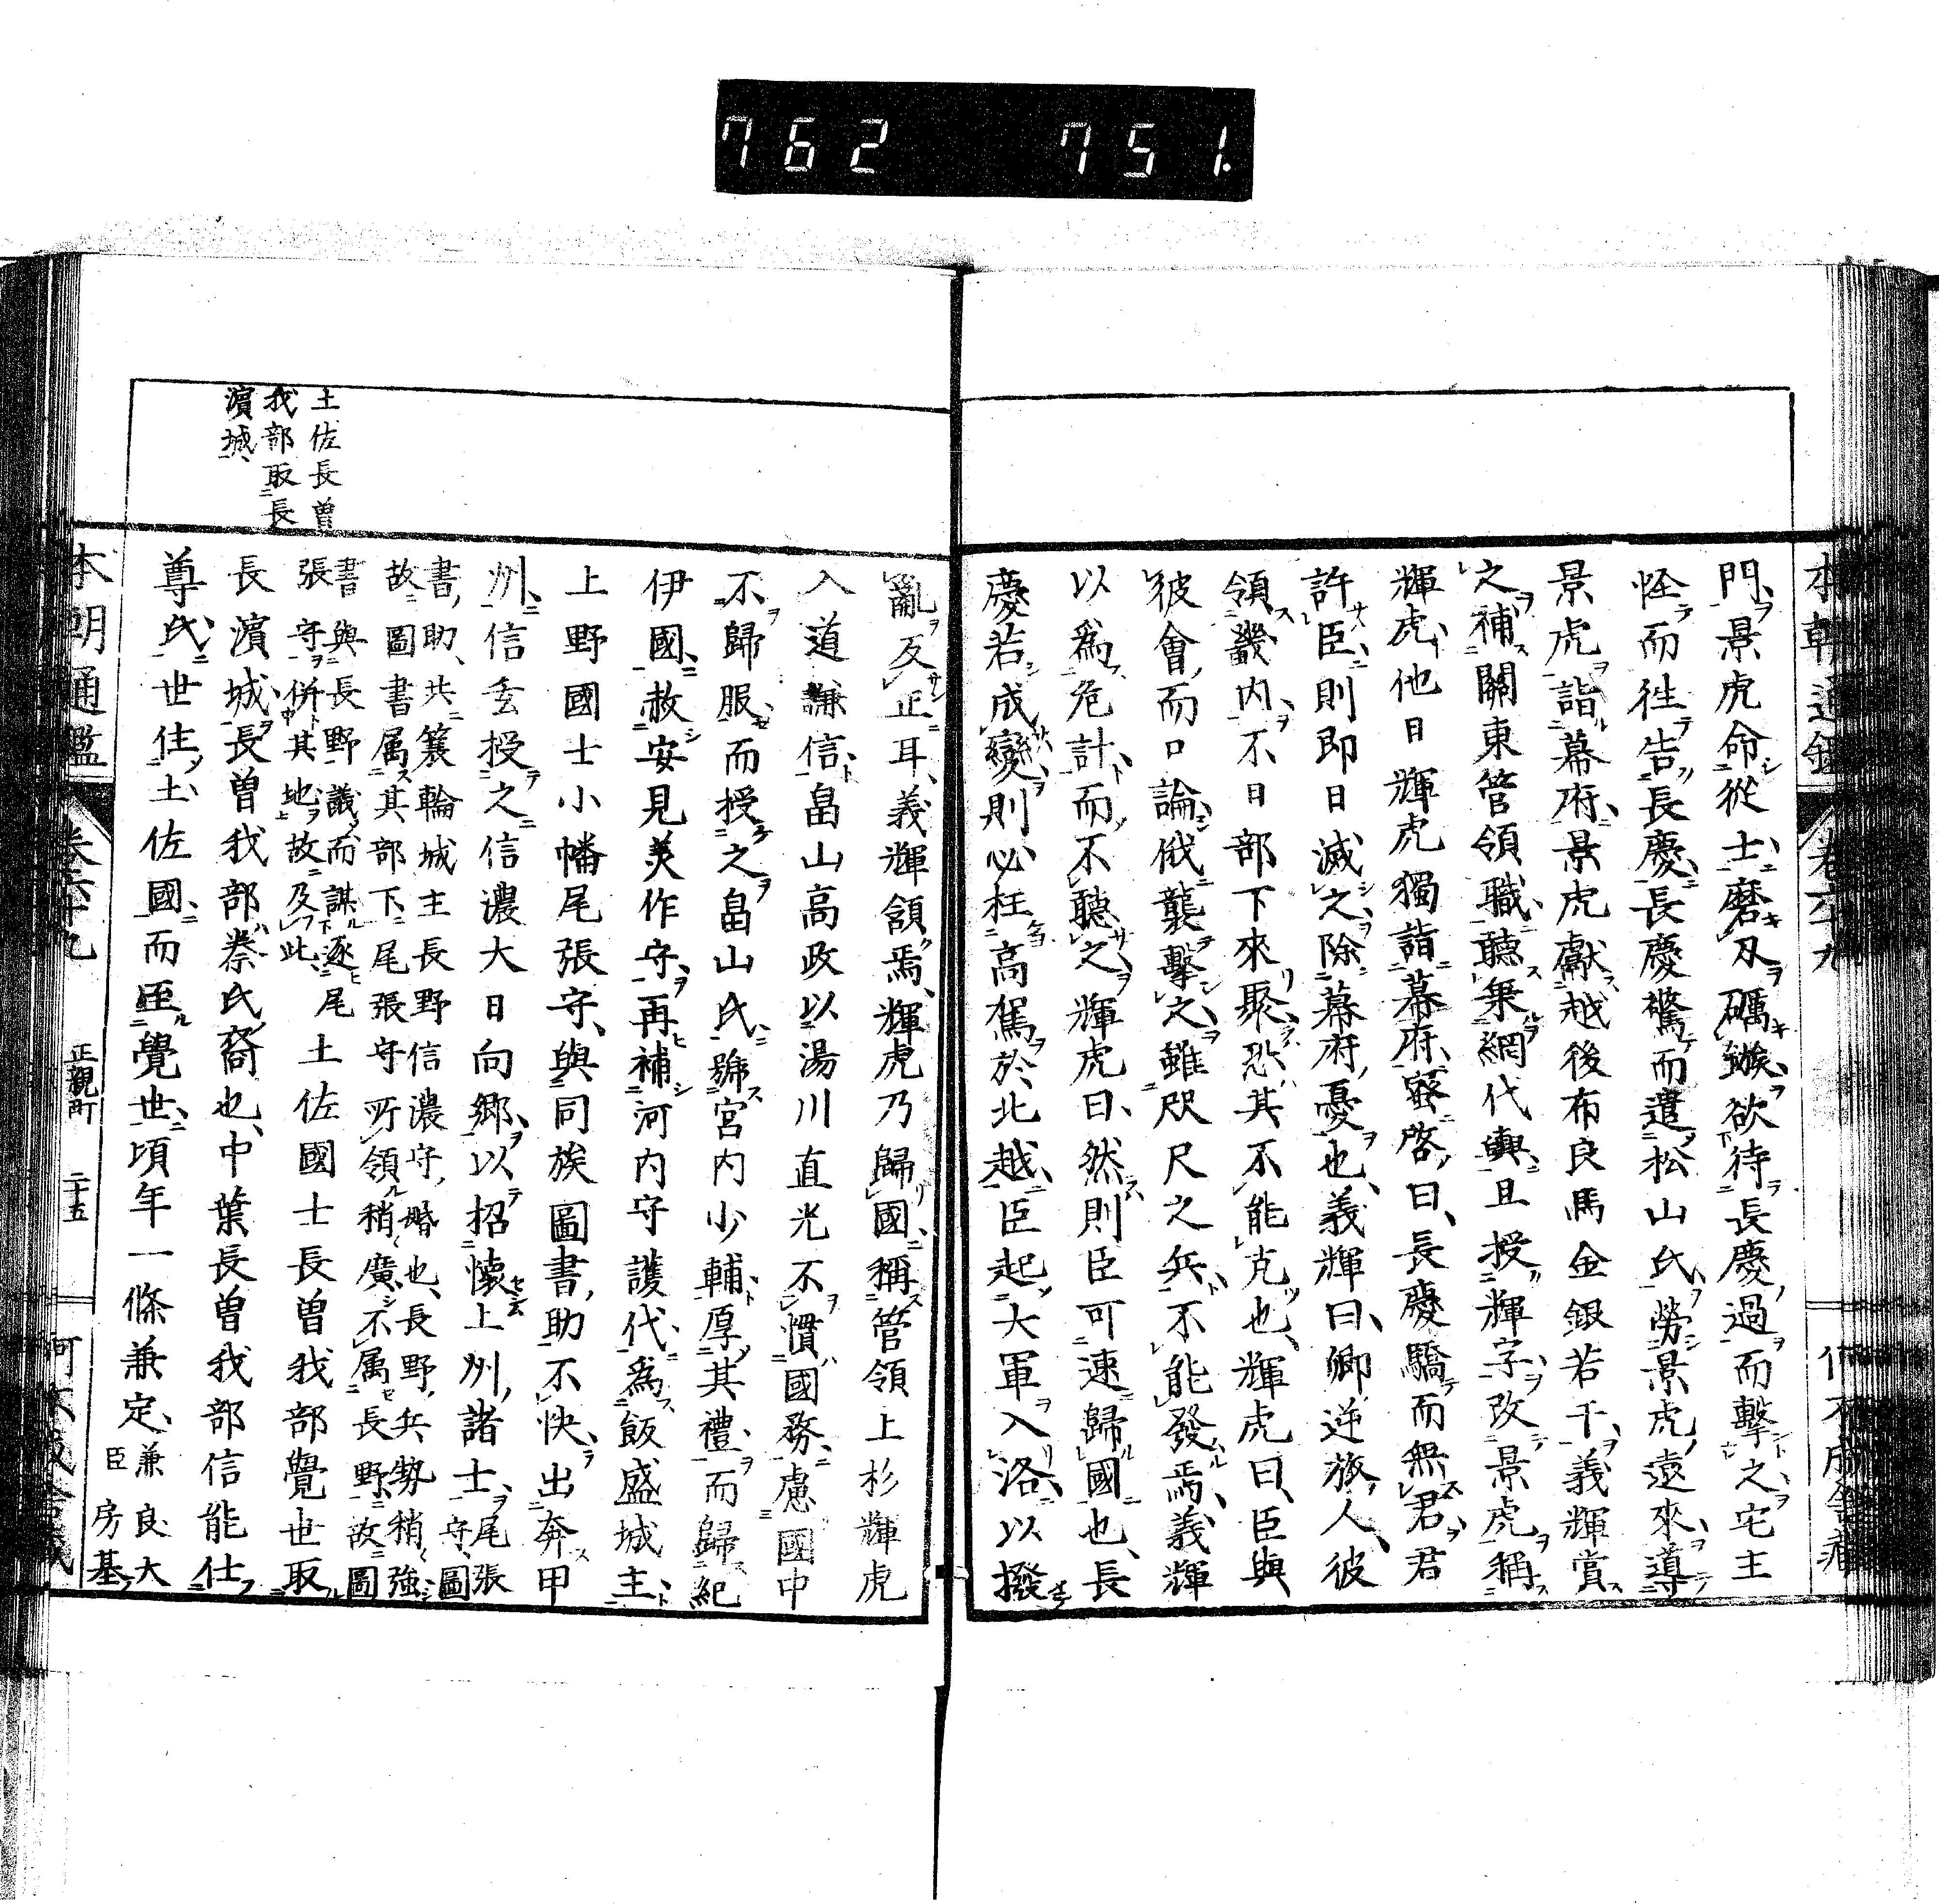 762 751.
門景虎命從士磨刄礪鏃欲待長慶過而擊之宅主
怪而徃告長慶長慶驚而遣松山氏勞景虎遠來導
景虎詣幕府景虎獻越後布良馬金銀若干義輝賞
之補關東管領職聽乗網代輿且授輝字改景虎稱
輝虎他日輝虎獨詣幕府密啓曰長慶驕而無君君
許臣則即日滅之除幕府憂也義輝曰卿逆旅人彼
領畿内不日部下來聚恐其不能克也輝虎曰臣與
彼會而口論俄襲擊之雖咫尺之兵不能發焉義輝
以爲危計而不聽之輝虎曰然則臣可速歸國也長
慶若成變則必枉高駕於北越臣起大軍入洛以撥
亂反正耳義輝頷焉輝虎乃歸國稱管領上杉輝虎
入道謙信畠山高政以湯川直光不慣國務慮國中
不歸服而授之畠山氏號宮内少輔厚其禮而歸紀
伊國赦安見美作守再補河内守護代爲飯盛城主
上野國士小幡尾張守與同族圖書助不快出奔甲
州信玄授之信濃大日向郷以招懷上州諸士尾張守圖
書助共簑輪城主長野信濃守婚也長野兵勢稍強
故圖書属其部下尾張守所領稍廣不属長野故圖
書與長野議而謀逐尾
張守併其地故及此土佐國士長曽我部覺世取
長濱城長曽我部秦氏裔也中葉長曽我部信能仕
尊氏世住土佐國而至覺世頃年一條兼定兼良大臣房基
土佐長曽
我部取長
濱城
本朝通鑑 卷六十九 正親町 二十五